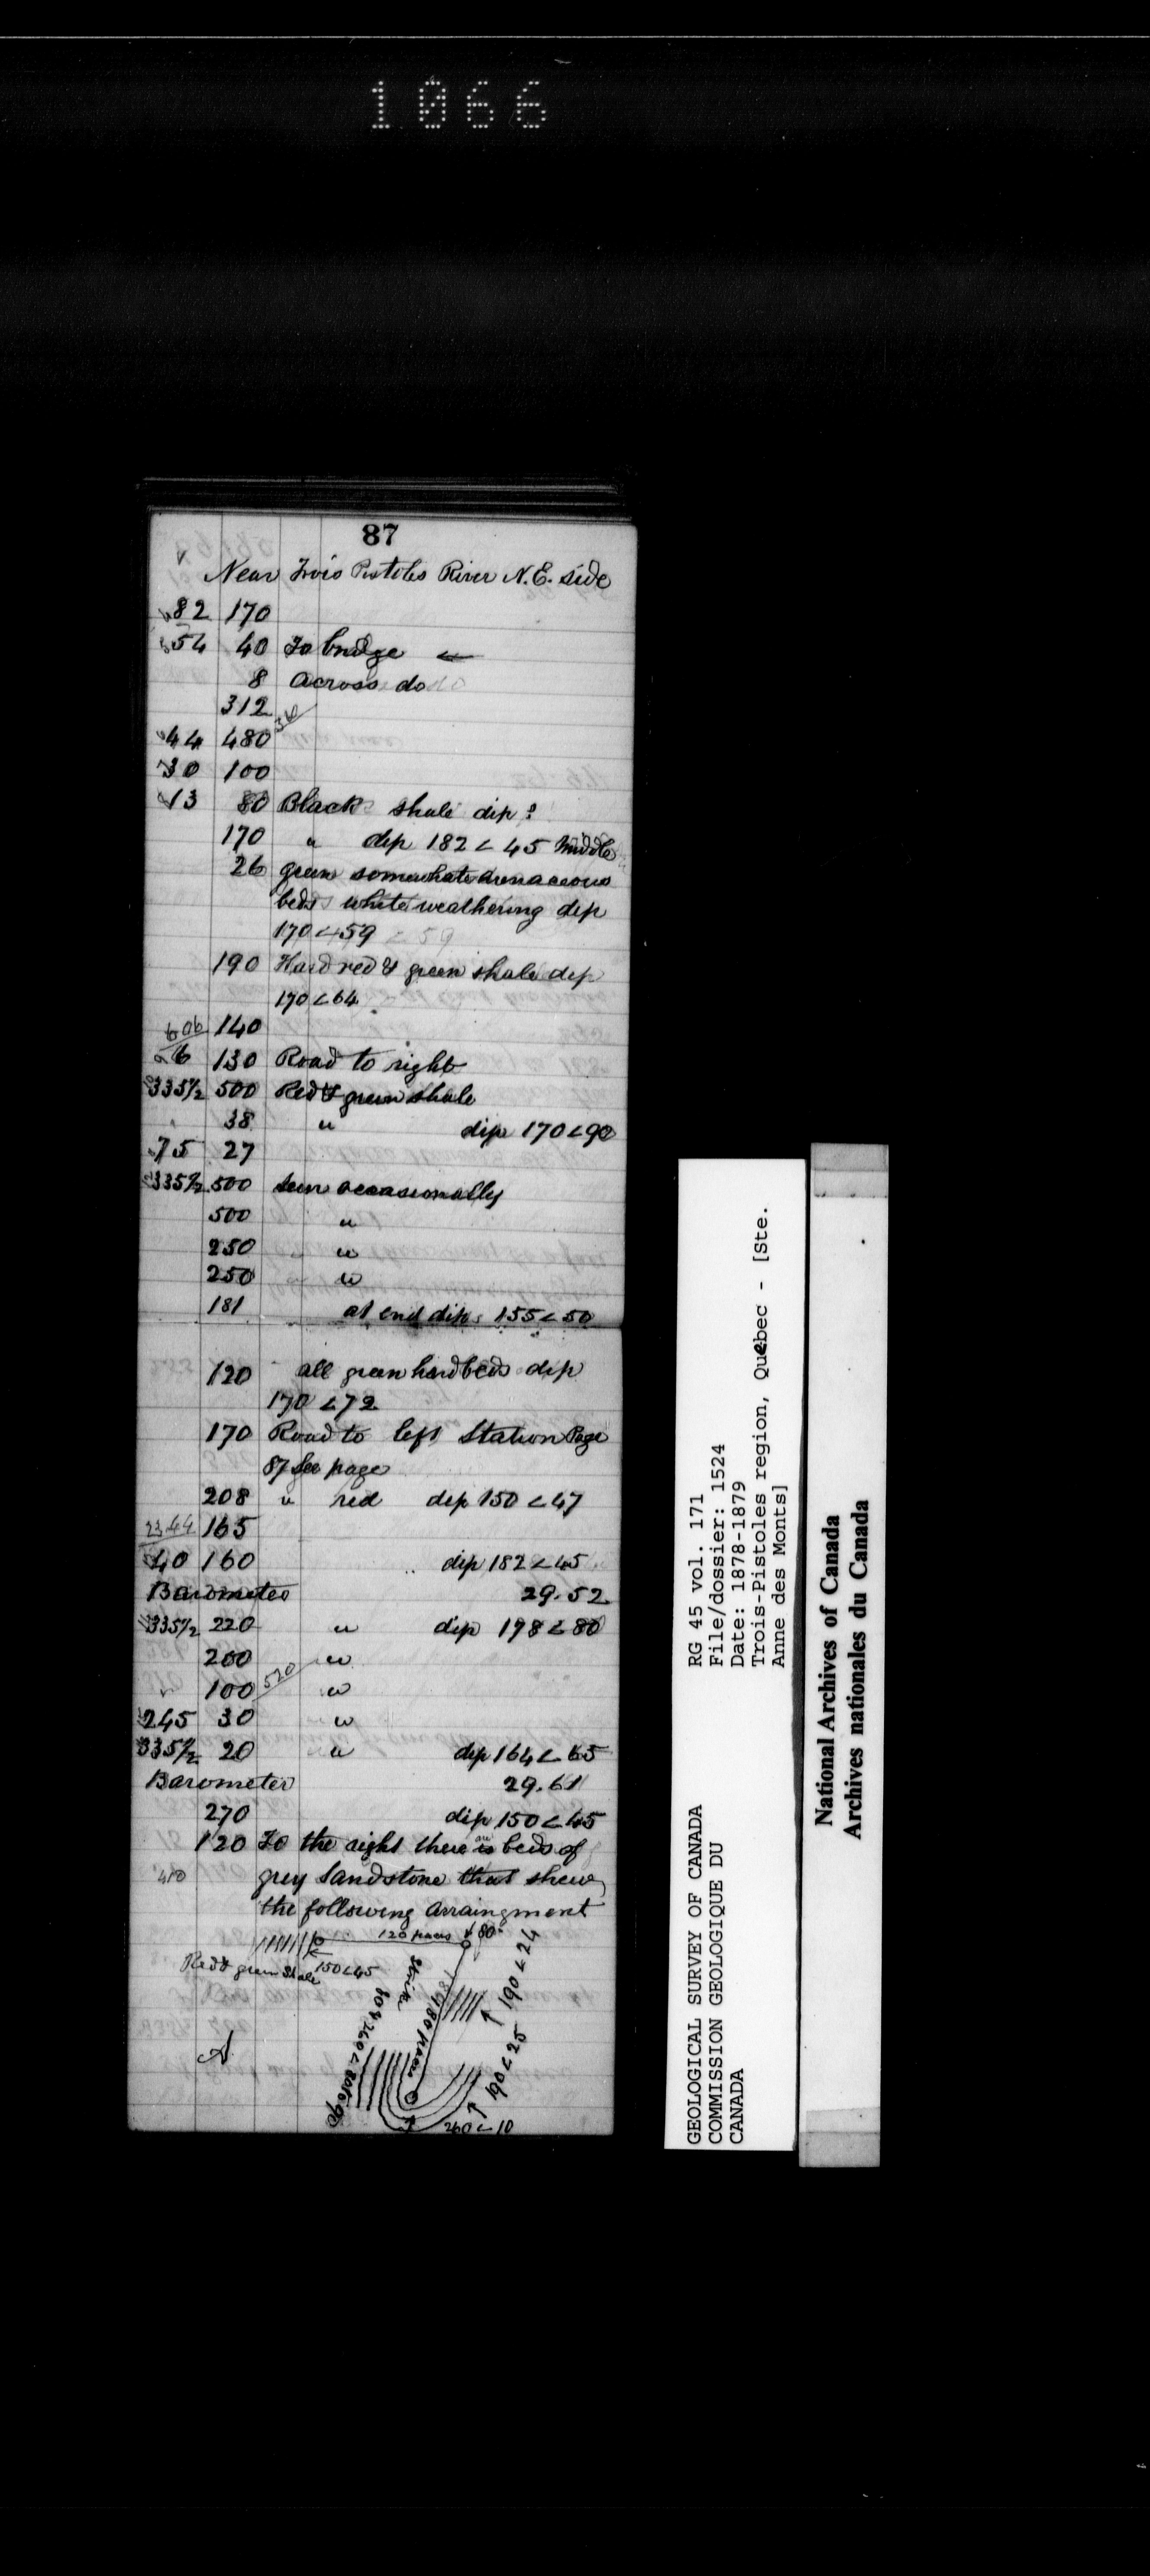 1066
87
Near Trois Pistoles River N.E. side
82 170
54 40 To bridge ←
8 across do
312
360
44 480
30 100
13 80 Black shale dip ?
170 " dip 182 < 45 Middle
26 green somewhat arenaceous
beds white weathering dip
170 < 59
190 Hard red & green shale dip
170 < 64
606 140
6 130 Road to right
335½ 500 Red & green shale
38 " dip 170 < 90
75 27
335½ 500 seen occasionally
500 "
250 "
250 "
181 at end dip 155 < 50
120 all green hard beds dip
170 < 72
170 Road to left Station Page
87 See page
208 " red dip 150 < 47
2344 165
40 160 " dip 182 < 45
Barometer 29.52
335½ 220 " dip 178 < 80
200 "
100 520 "
245 30 "
335½ 20 " dip 164 < 65
Barometer 29.61
270 dip 150 < 45
120 To the right there is are beds of
410 grey Sandstone that shew
the following arraingment
120 paces 80°
Red & green Shale 150 < 45
Strike
180 paces
190 < 24
190 < 25
80 & 260 < 80 to 90
260 < 10
A
GEOLOGICAL SURVEY OF CANADA
COMMISSION GEOLOGIQUE DU
CANADA
RG 45 vol. 171
File/dossier: 1524
Date: 1878-1879
Trois-Pistoles region, Quebec - [Ste.
Anne des Monts]
National Archives of Canada
Archives nationales du Canada